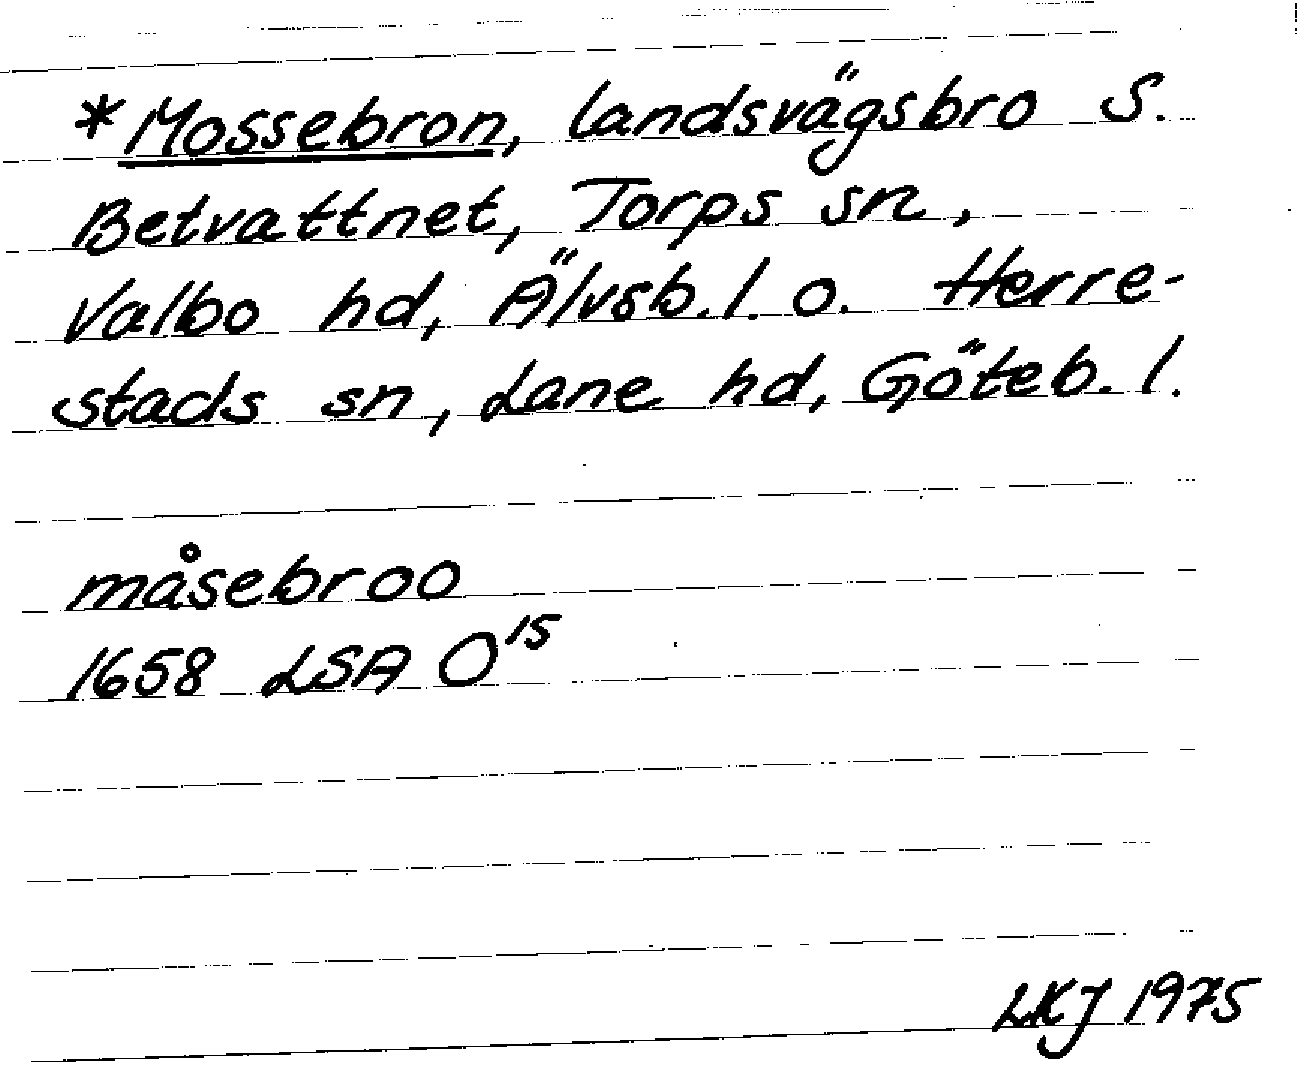 *Mossebron, landsvägsbro S.
Betvattnet, Torps sn,
Valbo hd, Älvsb. l. o. Herre-
stads sn, Lane hd, Göteb. l.
måsebroo
1658 LSA O15
LKJ 1975